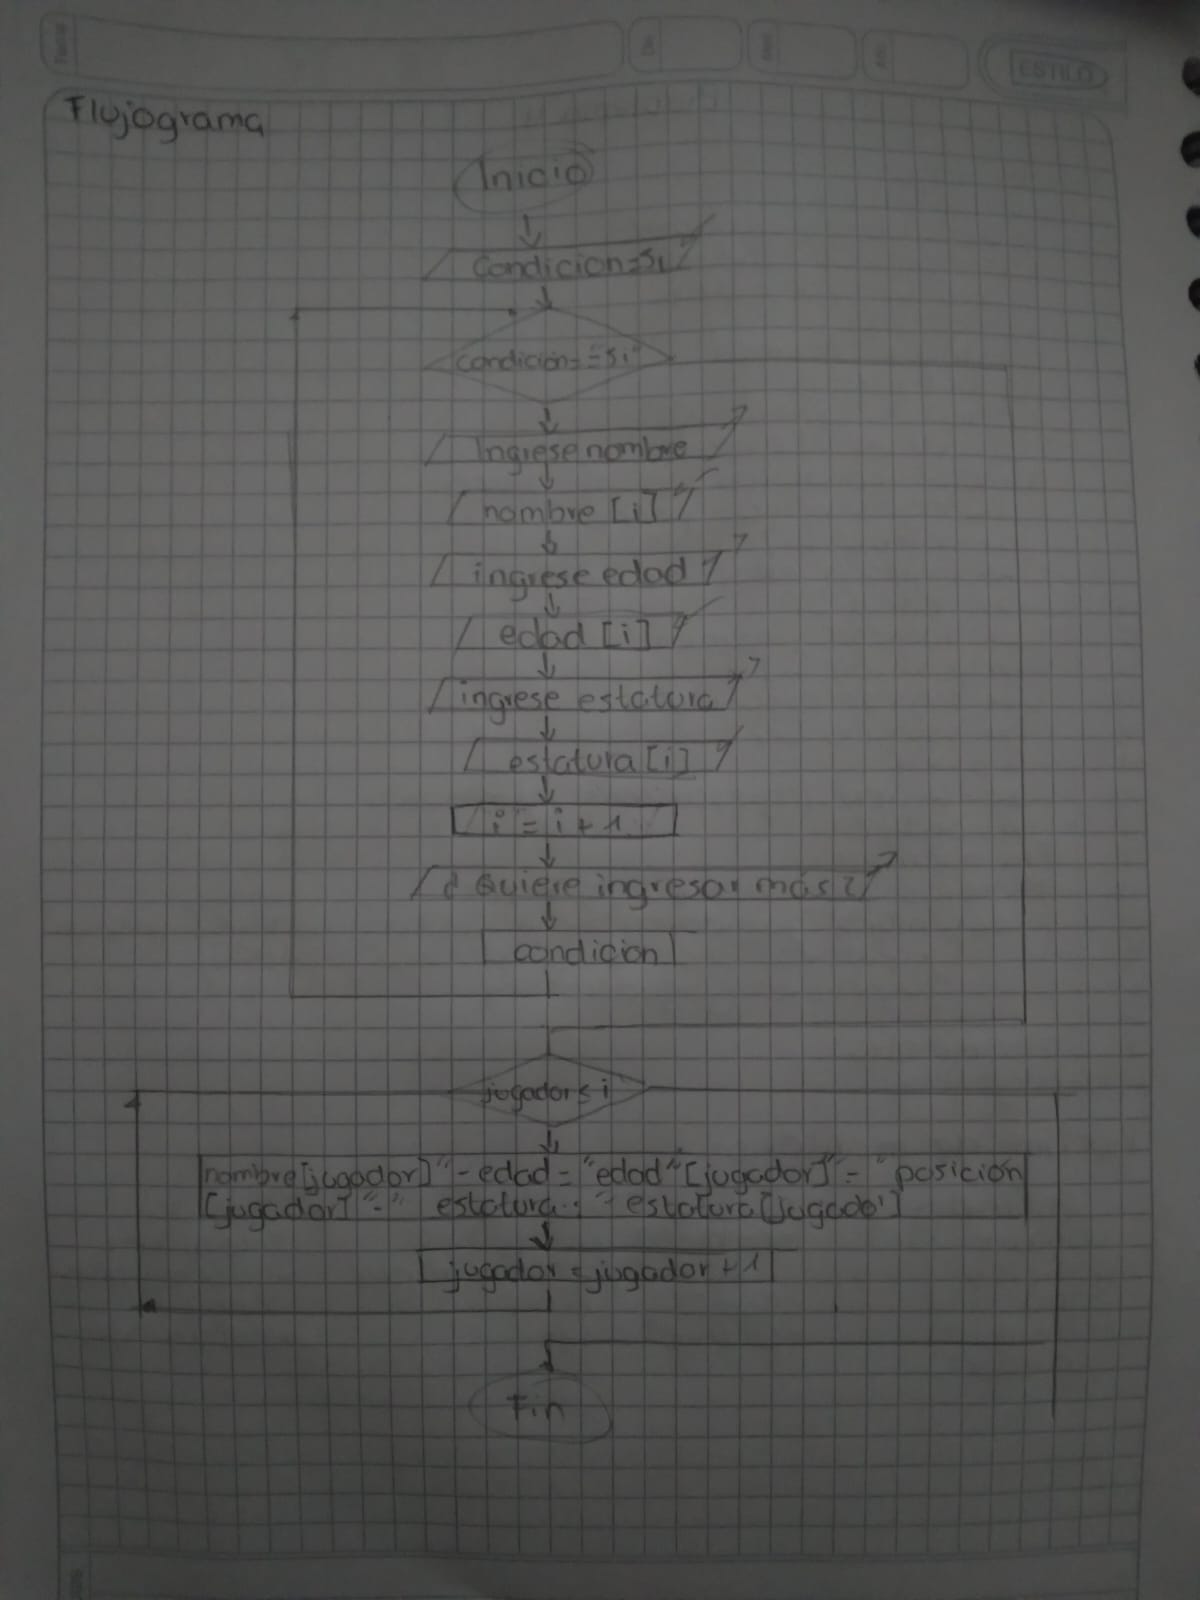 ESTILO
Flujograma
Inicio
Condicion=Si
condicion=="Si"
Ingrese nombre
nombre [i]
ingrese edad
edad [i]
ingrese estatura
estatura [i]
i = i + 1
¿ Quiere ingresar más?
condicion
jugador ≤ i
nombre[jugador]" - edad = "edad" [jugador]" - " posición
[jugador] " - " estatura: " - estatura [jugado']
jugador = jugador + 1
Fin